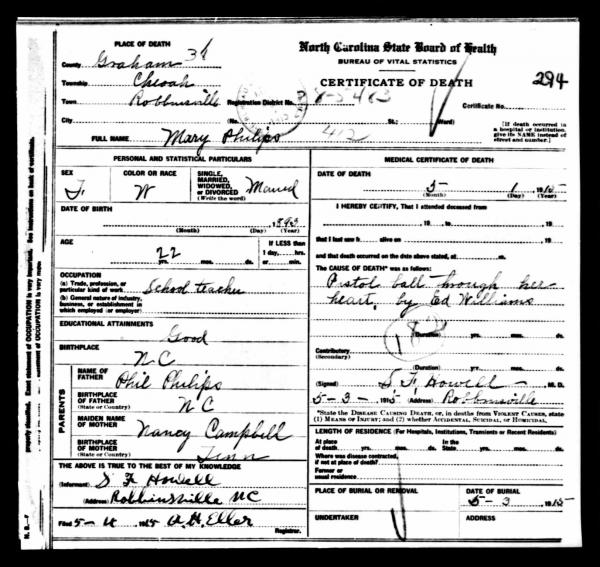 PLACE OF DEATH
County Graham
Township Cheoah
Town Robbinsville Registration District No. 8-5483
City (No. St.; Ward)
FULL NAME Mary Philips
North Carolina State Board of Health
BUREAU OF VITAL STATISTICS
CERTIFICATE OF DEATH
294
Certificate No.
[If death occurred in a hospital or institution, give its NAME instead of street and number.]
412
PERSONAL AND STATISTICAL PARTICULARS
SEX
F.
COLOR OR RACE
W
SINGLE, MARRIED, WIDOWED, OR DIVORCED
(Write the word)
Married
DATE OF BIRTH
1893
(Month) (Day) (Year)
AGE
22
yrs. mos. ds.
If LESS than
1 day, hrs.
or min.
OCCUPATION
(a) Trade, profession, or particular kind of work
School teacher
(b) General nature of industry, business, or establishment in which employed (or employer)
EDUCATIONAL ATTAINMENTS
Good
BIRTHPLACE
NC
PARENTS
NAME OF FATHER
Phil Philips
BIRTHPLACE OF FATHER
(State or Country)
NC
MAIDEN NAME OF MOTHER
Nancy Campbell
BIRTHPLACE OF MOTHER
(State or Country)
Tenn
THE ABOVE IS TRUE TO THE BEST OF MY KNOWLEDGE
(Informant) S F Howell
(Address) Robbinsville NC
Filed 5-4 1915 A.H. Eller
Registrar.
MEDICAL CERTIFICATE OF DEATH
DATE OF DEATH
5 1 1915
(Month) (Day) (Year)
I HEREBY CERTIFY, That I attended deceased from
, 19 , to , 19 ,
that I last saw h alive on , 19 ,
and that death occurred on the date above stated, at m.
The CAUSE OF DEATH* was as follows:
Pistol ball through her
heart, by Ed Williams
(Duration) yrs. mos. ds.
Contributory
(Secondary)
(Duration) yrs. mos. ds.
(Signed) S F, Howell M. D.
5-3-1915 (Address) Robbinsville
*State the DISEASE CAUSING DEATH, or, in deaths from VIOLENT CAUSES, state
(1) MEANS OF INJURY; and (2) whether ACCIDENTAL, SUICIDAL, or HOMICIDAL.
LENGTH OF RESIDENCE (For Hospitals, Institutions, Transients or Recent Residents)
At place of death yrs. mos. ds. In the State yrs. mos. ds.
Where was disease contracted, if not at place of death?
Former or usual residence
PLACE OF BURIAL OR REMOVAL
DATE OF BURIAL
5-3 1915
UNDERTAKER
ADDRESS